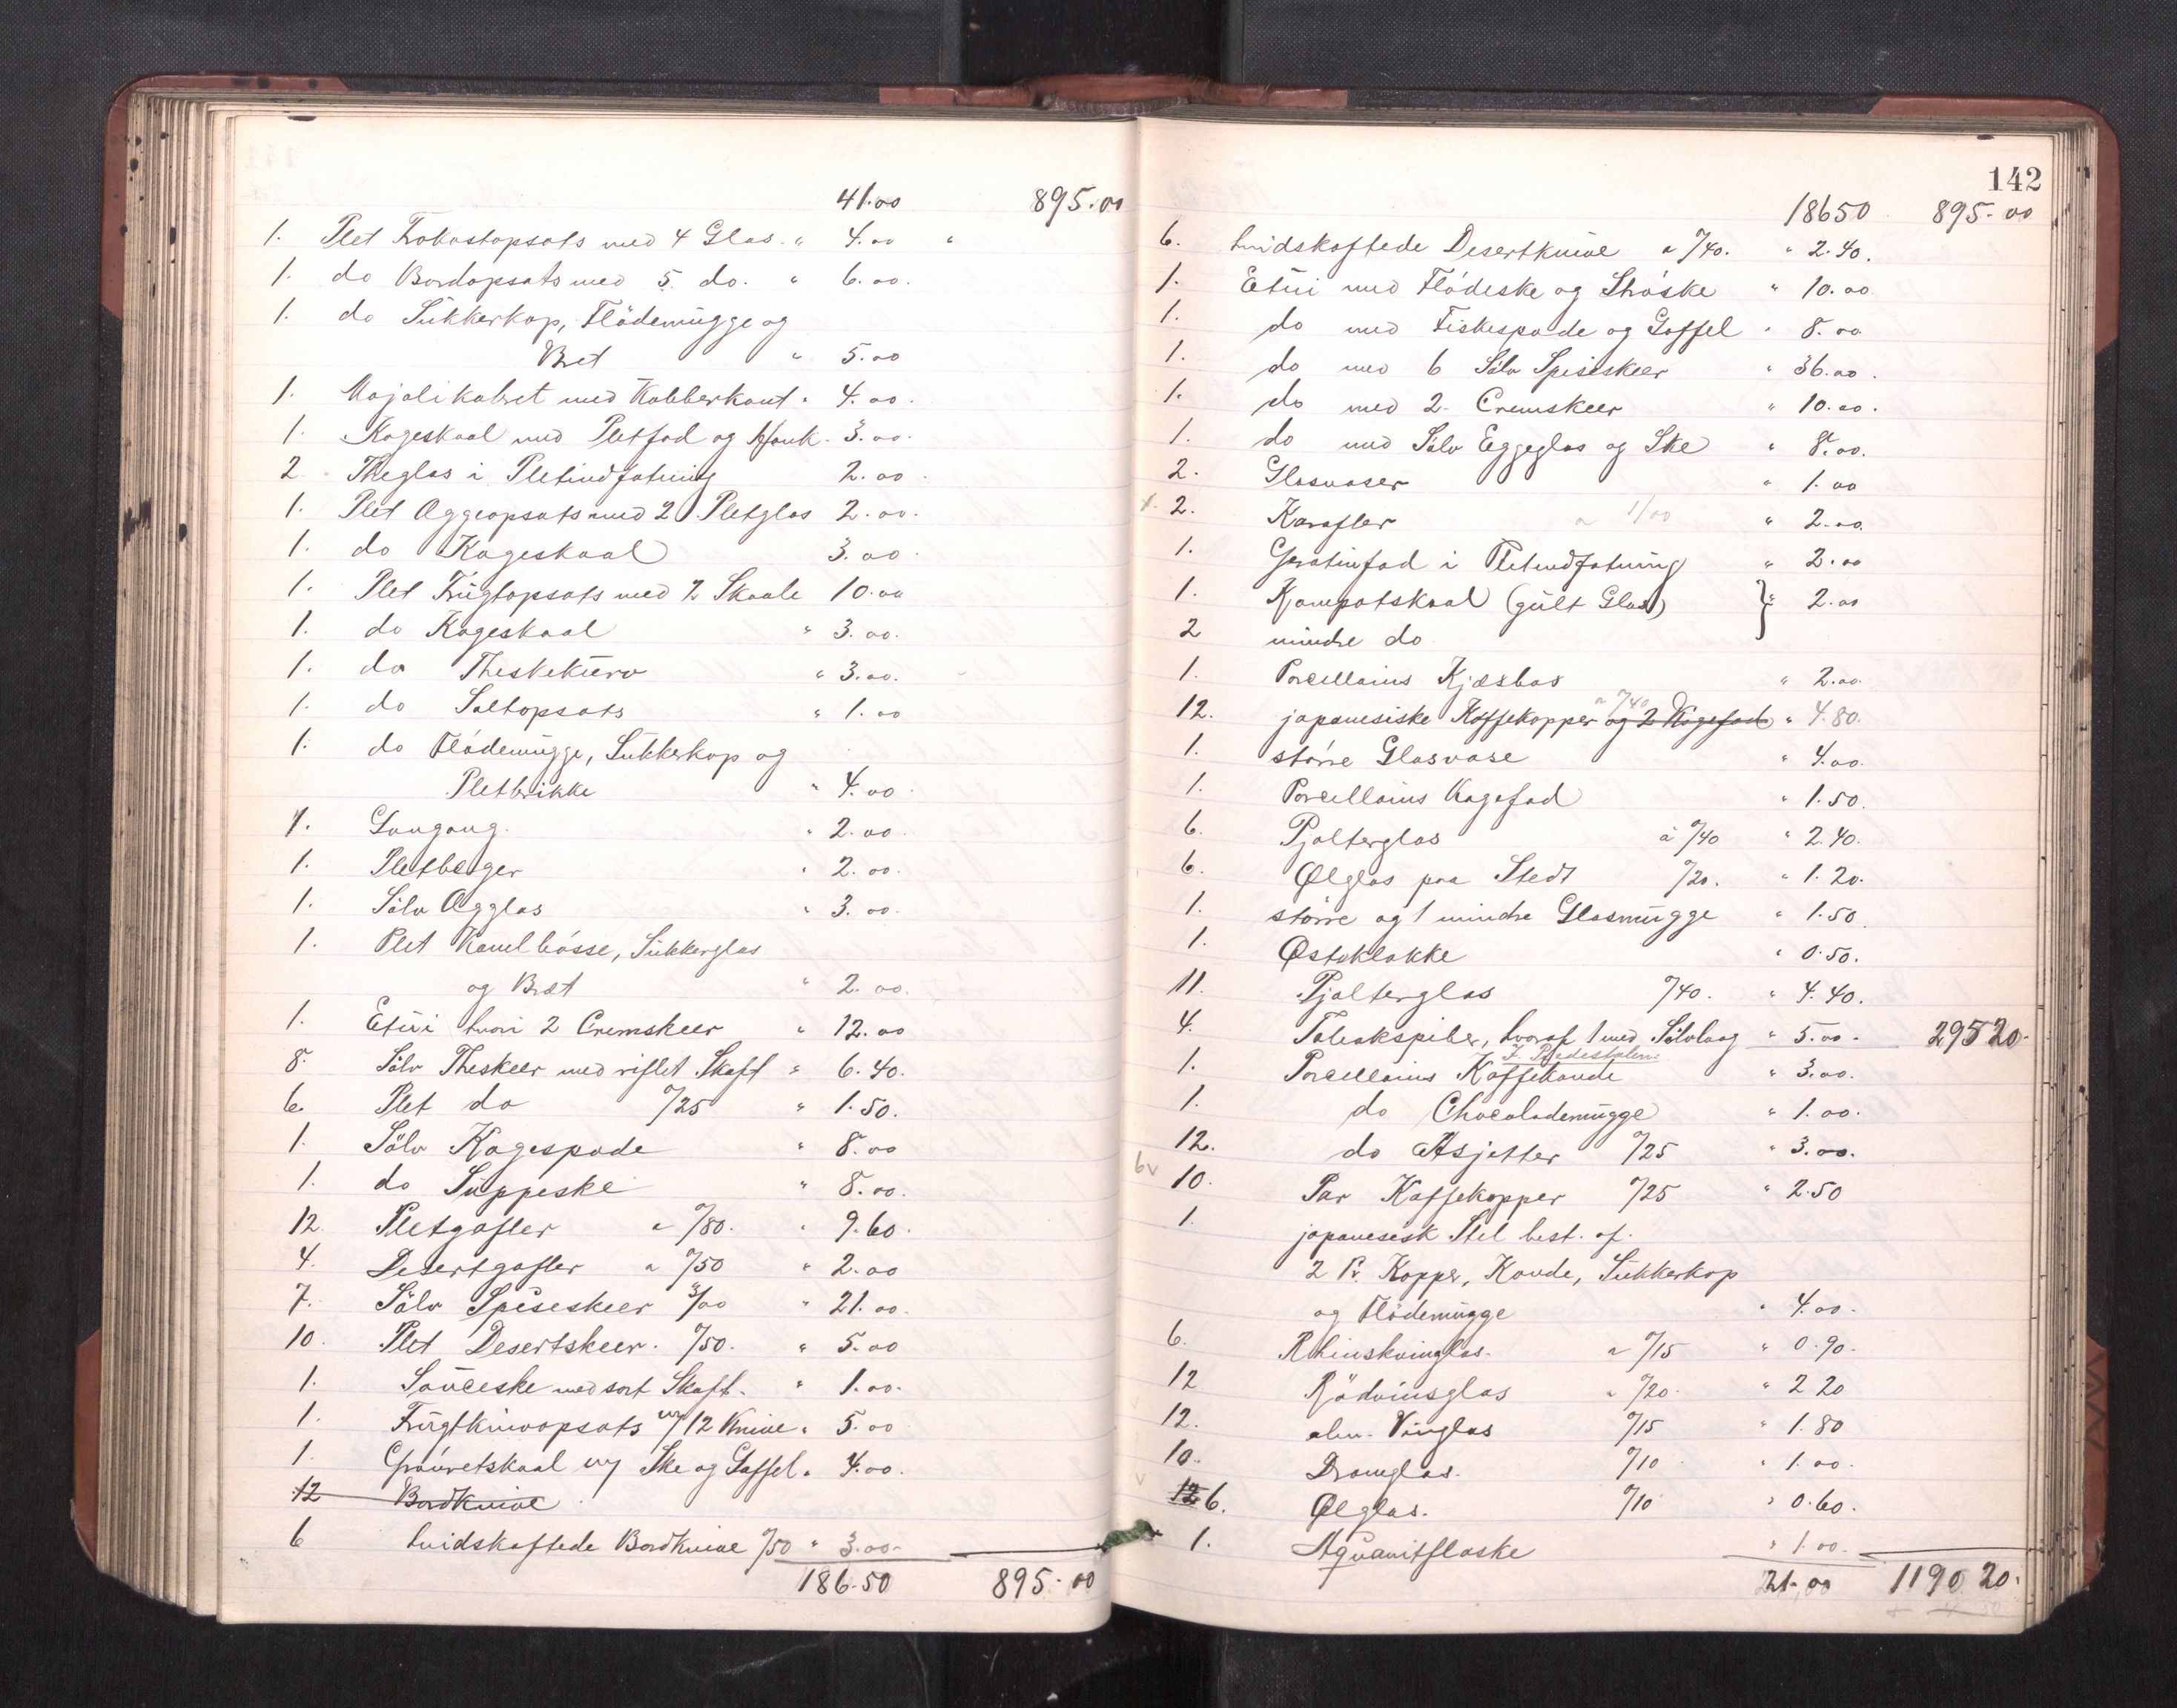 41.00 895.00
1. Plet Frokostopsats med 4 Glas. " 4.00 "
1. do Bordopsats med 5. do. " 6.00.
1. do Sukkerkop, Flödemugge og
Bret " 5.00
1. Majolikabret med Kobberkant " 4.00.
1. Kageskaal med Pletfod og Hank. 3.00.
2. Theglas i Pletindfatning 2.00.
1. Plet Æggeopsats med 2 Pletglas 2.00.
1. do Kageskaal 3.00.
1. Plet Frugtopsats med 2 Skaale 10.00
1. do Kageskaal " 3.00.
1. do Theskekurv " 3.00.
1. do Saltopsats " 1.00
1. do Flödemugge, Sukkerkop og
Pletbrikke " 4.00.
1. Gongong. " 2.00.
1. Pletbæger " 2.00.
1. Sölv Ægglas " 3.00.
1. Plet Kanelbösse, Sukkerglas
og Bræt " 2.00.
1. Etui hvori 2 Cremskeer " 12.00
8. Sölv Theskeer med riflet Skaft " 6.40.
6. Plet do 0/25 " 1.50.
1. Sölv Kagespade " 8.00
1. do Suppeske " 8.00.
12. Pletgafler a 0/80. " 9.60.
4. Desertgafler a 0/50 " 2.00
7. Sölv Spiseskeer 3/00 " 21.00.
10. Plet Desertskeer. 0/50. " 5.00
1. Sauceske med sort Skaft. " 1.00.
1. Frugtknivopsats m/ 12 Knive " 5.00
1. Skaal m/ Ske og Gaffel " 4.00.
12 Bordknive
6 hvidskaftede Bordknive 0/50 " 3.00.
186.50 895.00
142
18650 895.00
6. hvidskaftede Desertknive a 0/40. " 2.40.
1. Etui med Flödeske og Ströske " 10.00.
1. do med Fiskespade og Gaffel " 8.00
1. do med 6 Sölv Spiseskeer " 36.00.
1. do med 2 Cremskeer " 10.00.
1. do med Sölv Eggeglas og Ske " 8.00.
2. Glasvaser " 1.00
2. Karafler a 1/00 " 2.00.
1. Gratinfad i Pletindfatning " 2.00
1. Kompotskaal (gult Glas) } " 2.00
2 mindre do
1. Porcellains Kjæxbox " 2.00.
12. japanesiske Kaffekopper a 0/40 og 2 Kagefad " 4.80.
1. större Glasvase " 4.00.
1. Porcellains Kagefad " 1.50.
6. Pjolterglas à 0/40 " 2.40.
6. Ølglas paa Stedt 0/20. " 1.20.
1. större og 1 mindre Glasmugge " 1.50.
1. Osteklokke " 0.50.
11. Pjolterglas 0/40. " 4.40.
4. Tobakspiber, hvoraf 1 med Sölvlaag " 5.00. 295 20.
1. Porcellains Kaffekande " 3.00.
1. do Chocolademugge " 1.00.
12. do Asjetter 0/25 " 3.00.
6v 10. Par Kaffekopper 0/25 " 2.50
1. japanesesk Stel best. af.
2 Pr. Kopper, Kande, Sukkerkop
og Flödemugge " 4.00.
6. Rhinskvinglas. a 0/15 " 0.90.
12 Rödvinsglas " 0/20. " 2 20
12. alm. Vinglas 0/15 " 1.80
10. Dramglas. 0/10 " 1.00.
12 6. Ølglas. 0/10 " 0.60.
1. Aquavitflaske " 1.00.
21.00 1190 20.